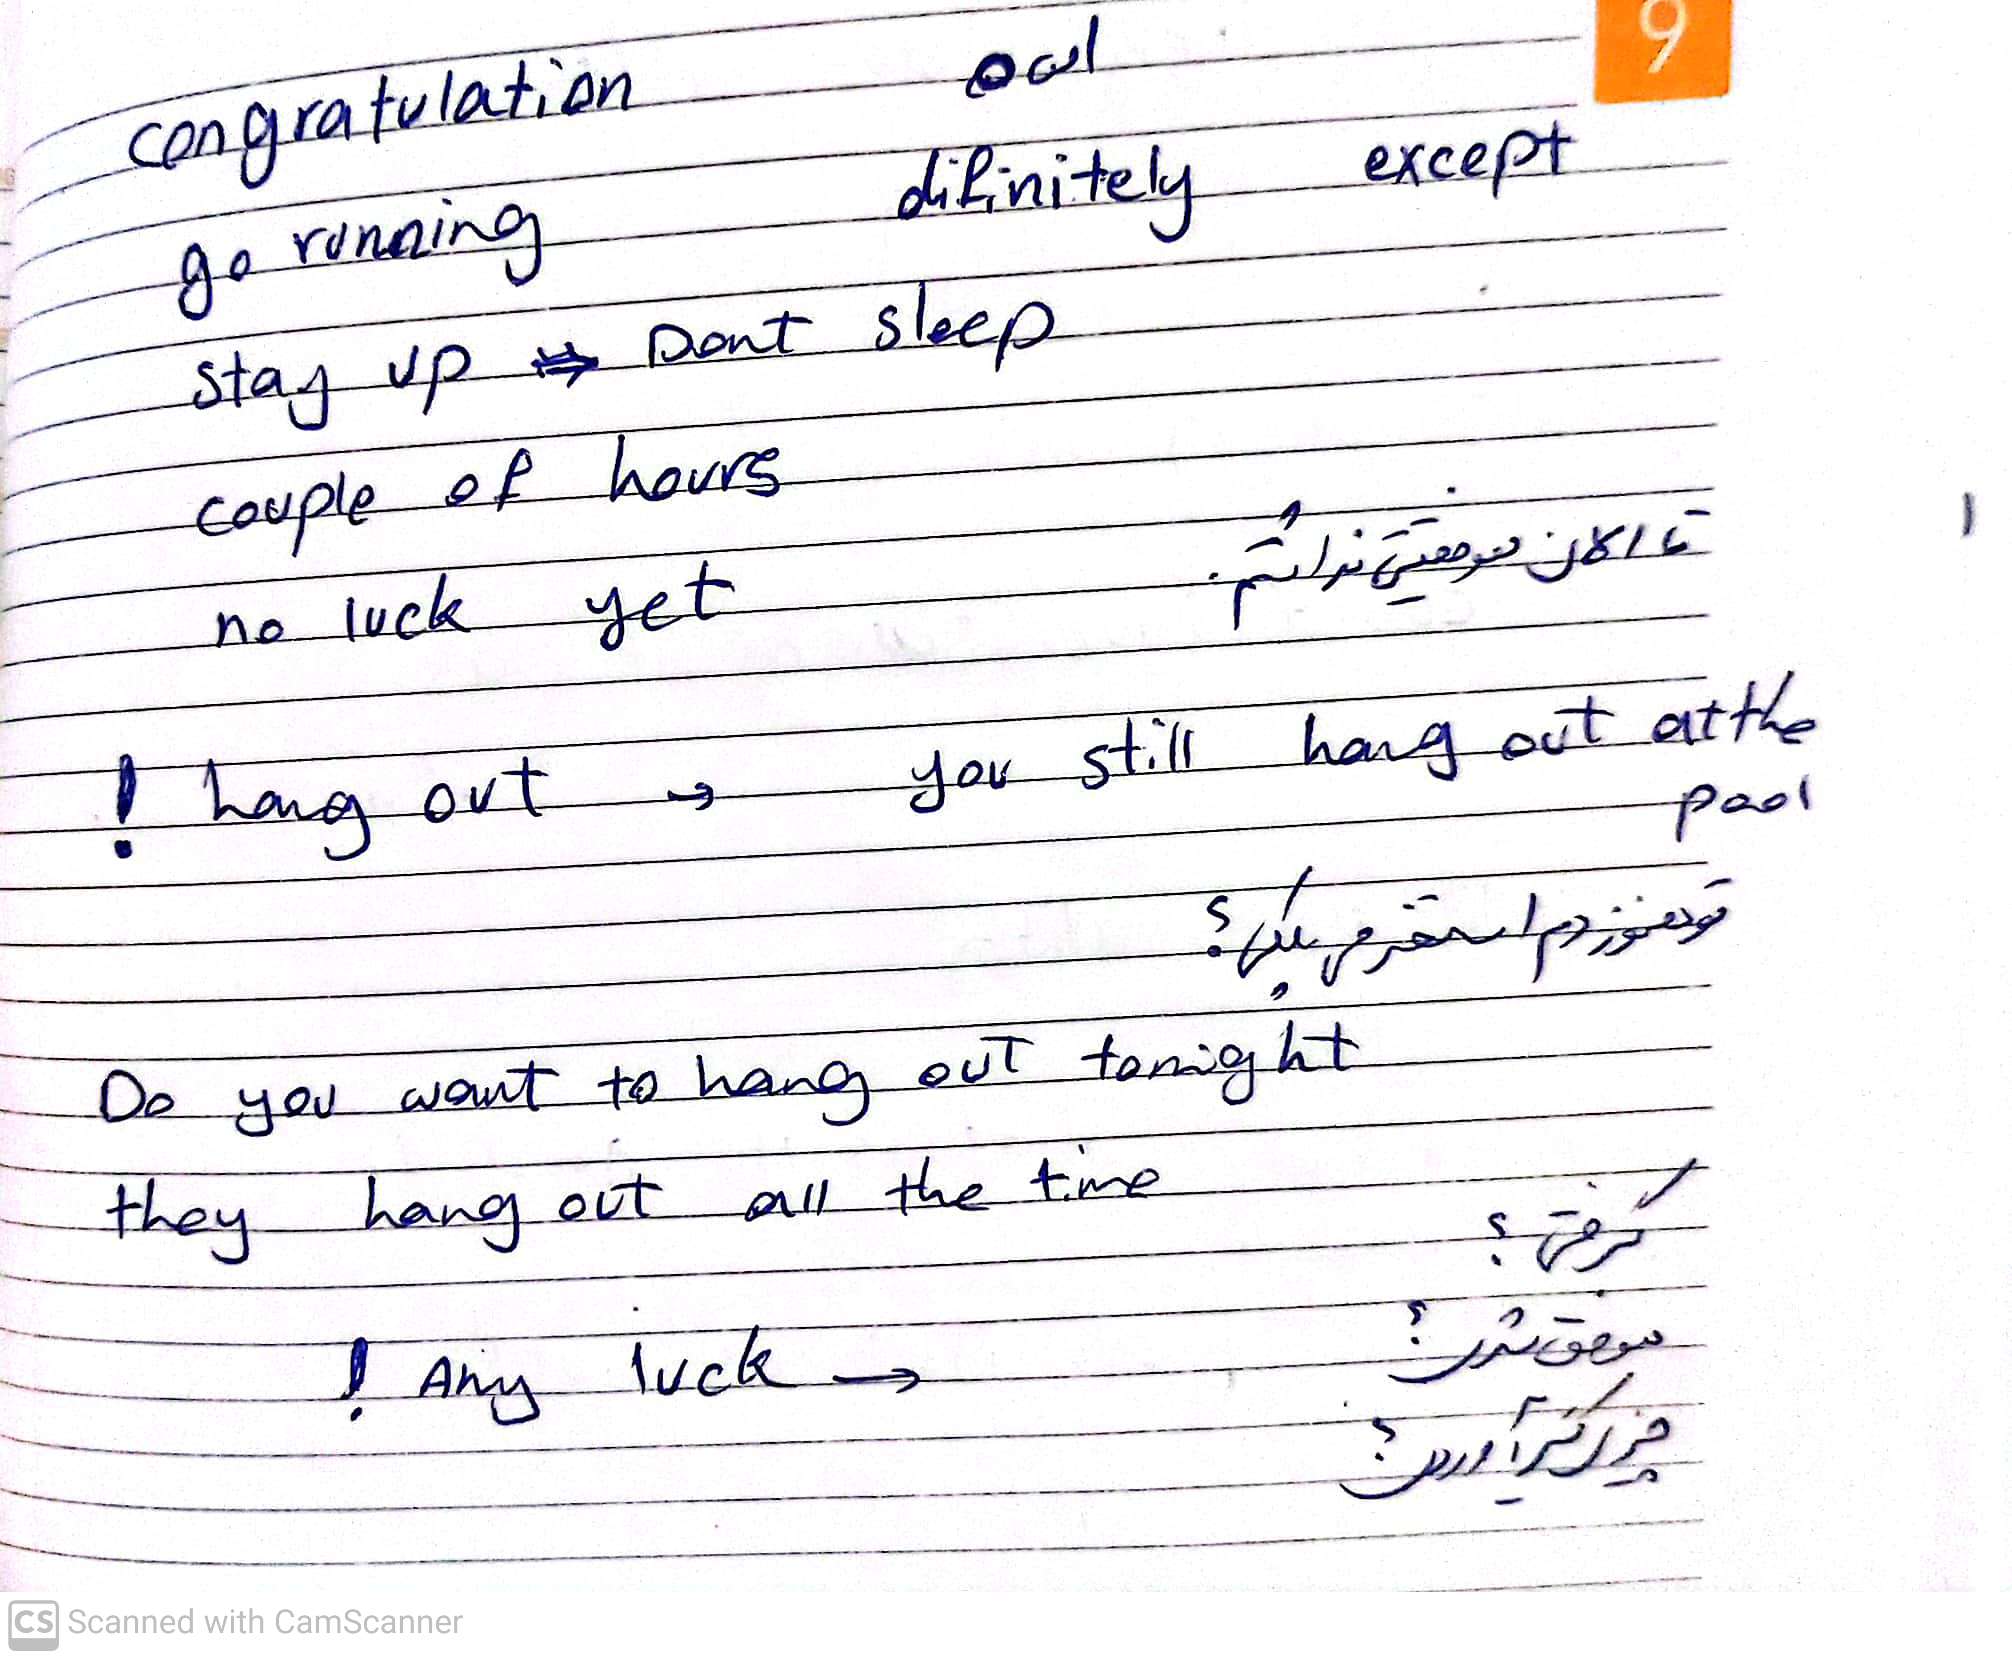 9
congratulation owl
go running difinitely except
stay up ⇒ Dont sleep
couple of hours
no luck yet تا الان موفقیتی نداشتم.
! hang out → you still hang out at the
pool
تو هنوز دم استخر می پلکی؟
Do you want to hang out tonight
they hang out all the time
گرفتی؟
! Any luck → موفق شدی؟
چیزی گیر آوردی؟
CS Scanned with CamScanner